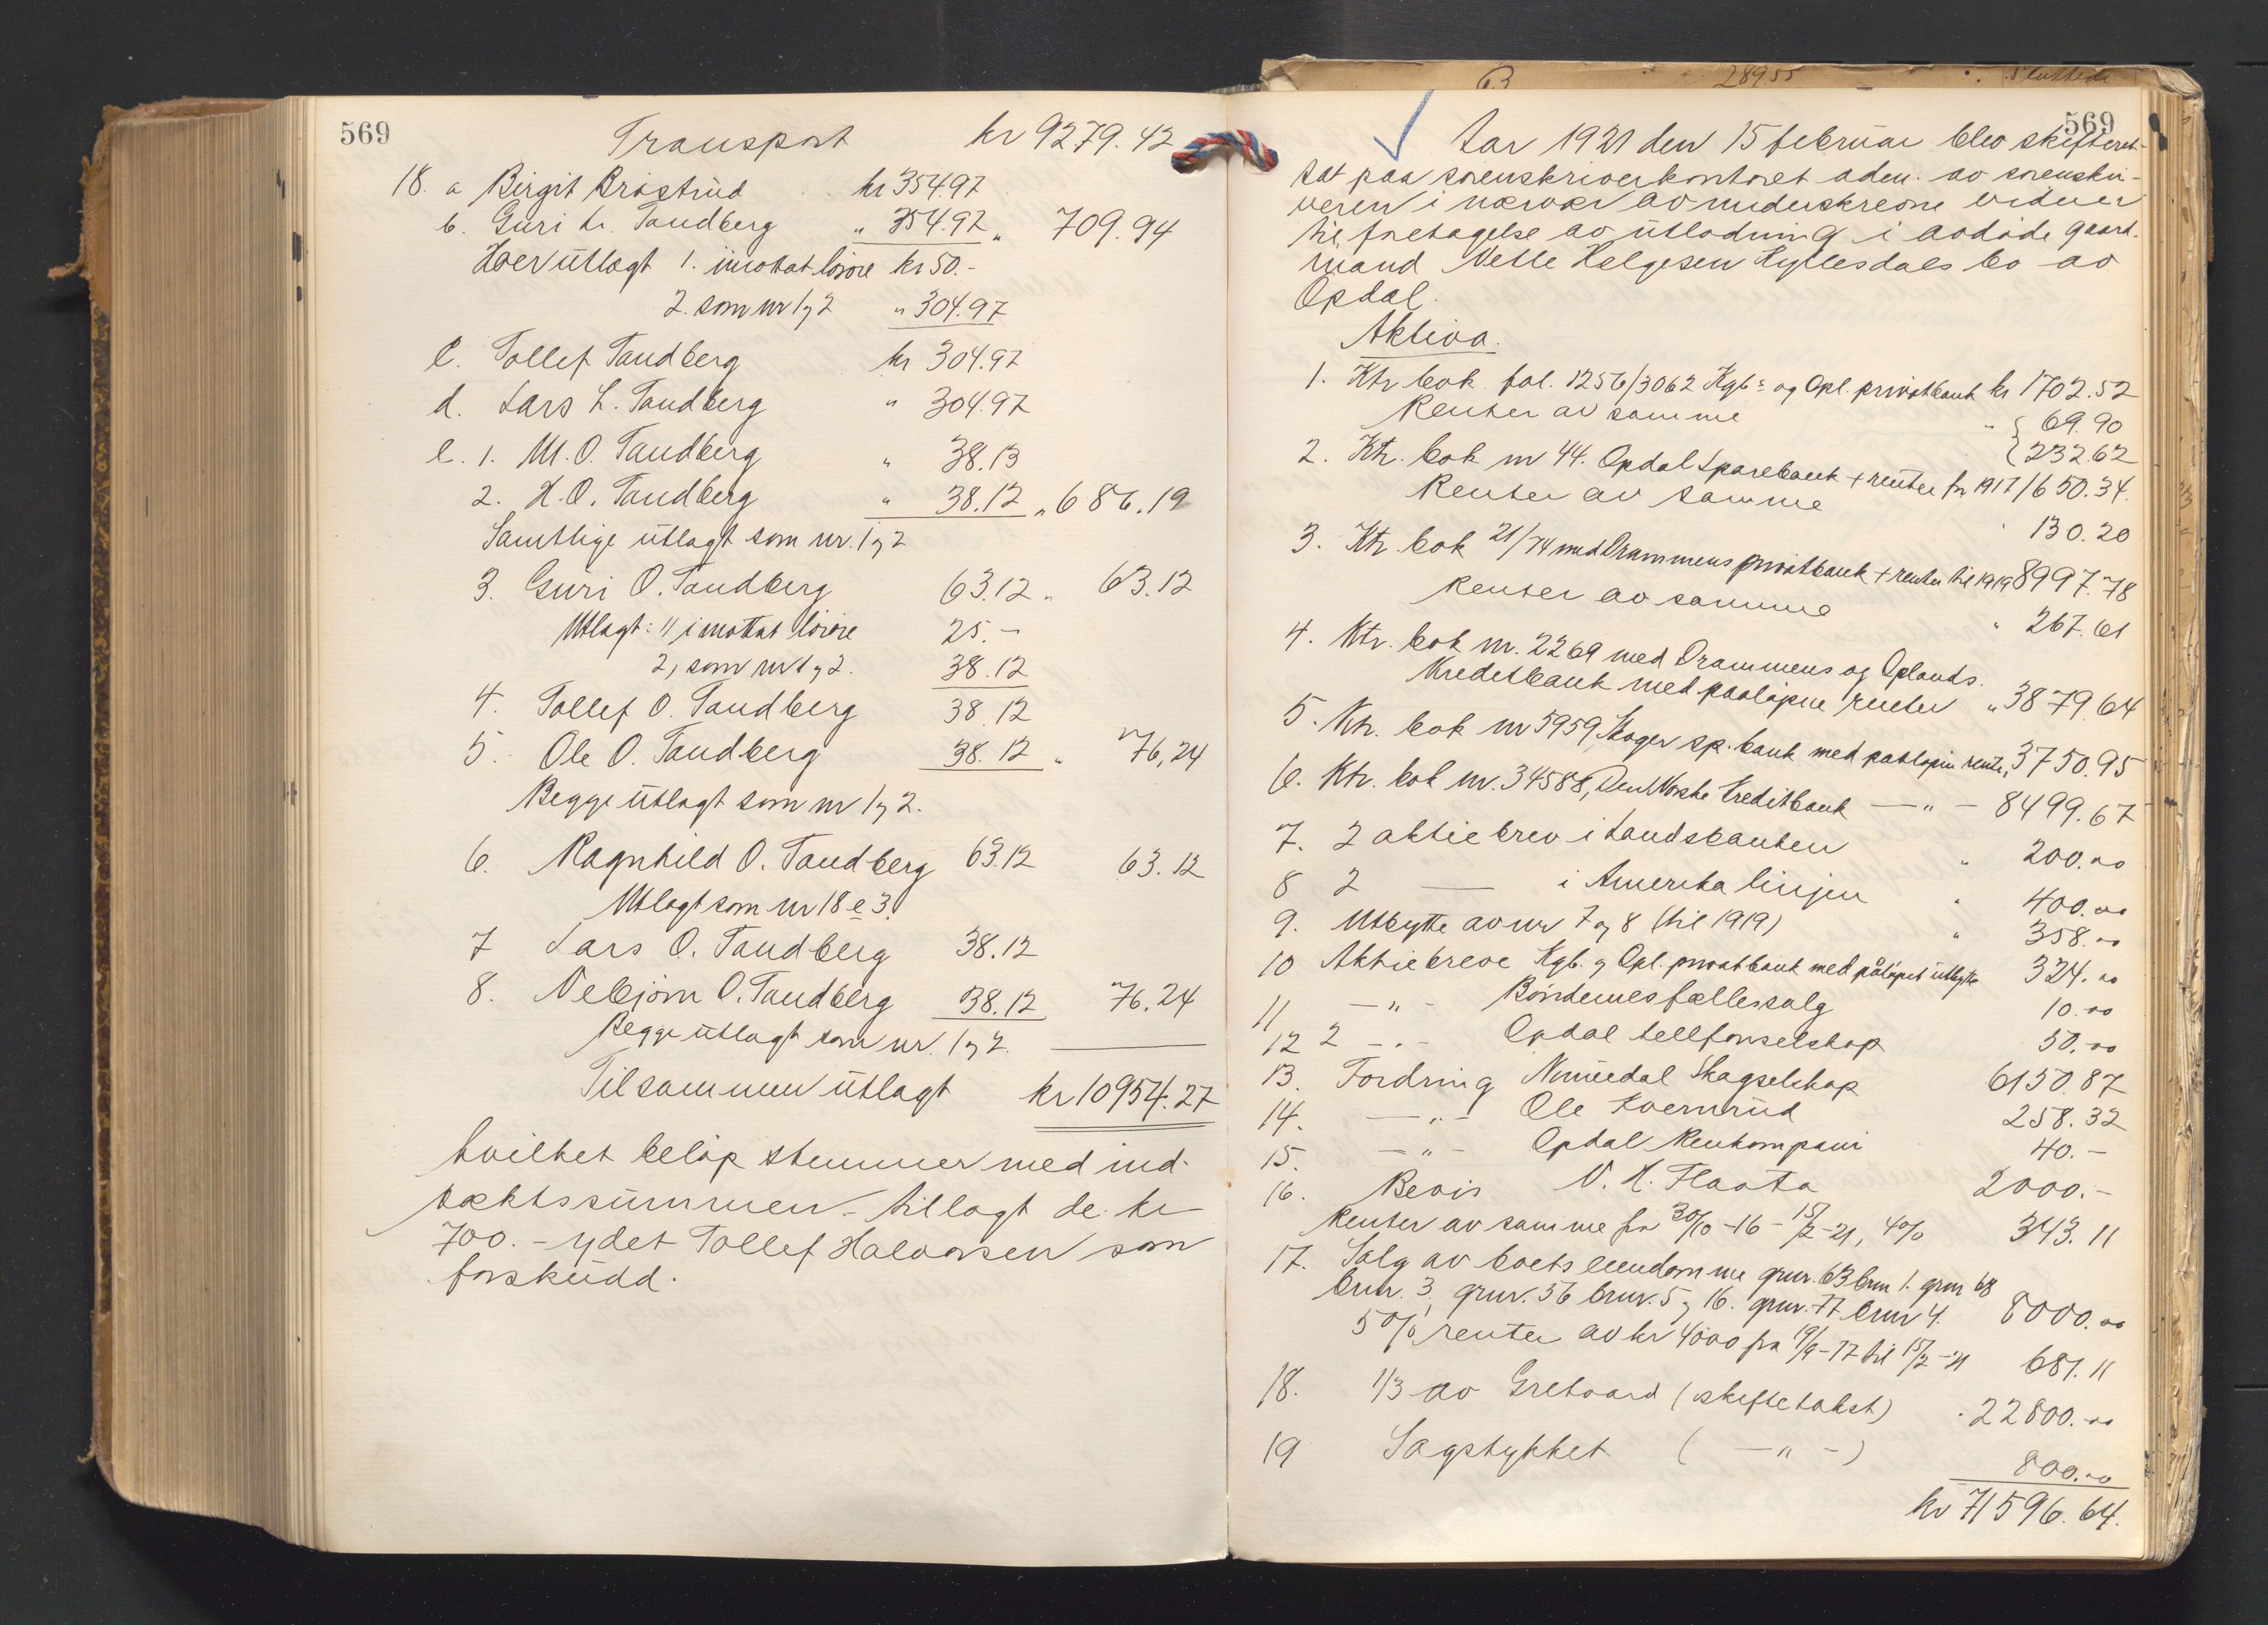 569
Transport kr 9279.42
18. a Birgit Brøstrud kr 354.97
b. Guri L. Tandberg " 354.97 " 709.94
Hver utlagt 1. imottat løsøre kr 50.-
2. som nr 1 og 2 " 304.97
c. Tollef Tandberg kr 304.97
d. Lars L. Tandberg " 304.97
e. 1. M. O. Tandberg " 38.13
2. H. O. Tandberg " 38.12 " 686.19
Samtlige utlagt som nr. 1 og 2
3. Guri O. Tandberg 63.12 " 63.12
Utlagt: 1) imottat løsøre 25.-
2, som nr 1 og 2. 38.12
4. Tollef O. Tandberg 38.12
5. Ole O. Tandberg 38.12 " 76,24
Begge utlagt som nr 1 og 2.
6. Ragnhild O. Tandberg 63.12 63.12
Utlagt som nr 18 e 3.
7 Lars O. Tandberg 38.12
8. Nebjørn O. Tandberg 38.12 76.24
Begge utlagt som nr. 1 og 2.
Tilsammen utlagt kr 10954.27
hvilket beløp stemmer med ind-
tæktssummen tillagt de kr
700.- ydet Tollef Halvorsen som
forskudd.
63 289.55 Sluttede
569
Aar 1921 den 15 februar blev skifteret
sat paa sorenskriverkontoret adm. av sorenskri-
veren i nærvær av underskrevne vidner
til foretagelse av utlodning i avdøde gaard-
mand Vetle Helgesen Hyllesdals bo av
Opdal.
Aktiva.
1. Ktr. bok fol. 1256/3062 Kgb. og Opl. privatbank kr 1702.52
Renter av samme " 69.90
232.62
2. Ktr. bok nr 44. Opdal Sparebank + renter for 1917 1650.34.
Renter av samme " 130.20
3. Ktr. bok 21/74 med Drammens privatbank + renter til 1919 8997.78
Renter av samme " 267.61
4. Ktr. bok nr. 2269 med Drammens og Oplands.
Kreditbank med paaløpne renter " 3879.64
5. Ktr. bok nr 5959 Skoger sp. bank med paaløpne rente, 3750.95
6. Ktr. bok nr. 34588, Den Norske Kreditbank — " — 8499.67
7. 2 aktiebrev i Landsbanken " 200.00
8 2 — i Amerika linjen " 400.00
9. Utbytte av nr 7 og 8 (til 1919) " 358.00
10 Aktiebreve Kgb. og Opl. privatbank med påløpet utbytte 324.00
11 — " — Bøndernes fællessalg 10.00
12 2 — " — Opdal tellfonselskap 50.00
13. Fordring Numedal Skogselskap 6150.87
14. — " — Ole Kvernrud 258.32
15. — " — Opdal Renkompani 40.-
16. Bevis N. H. Flaata 2000.-
Renter av samme fra 30/10-16 - 15/2-21, 4% 343.11
17. Salg av boets eiendomme gnr. 63 bnr 1. gnr 68
bnr. 3, gnr. 56 bnr. 5 og 16. gnr. 77 bnr 4. 8000.00
5% renter av kr 4000 fra 19/9-17 til 15/2-21 681.11
18. 1/3 av Gretvard (skiftetakst) " 22800.00
19 Sagstykket ( — " — ) 800.00
kr 71596.64.